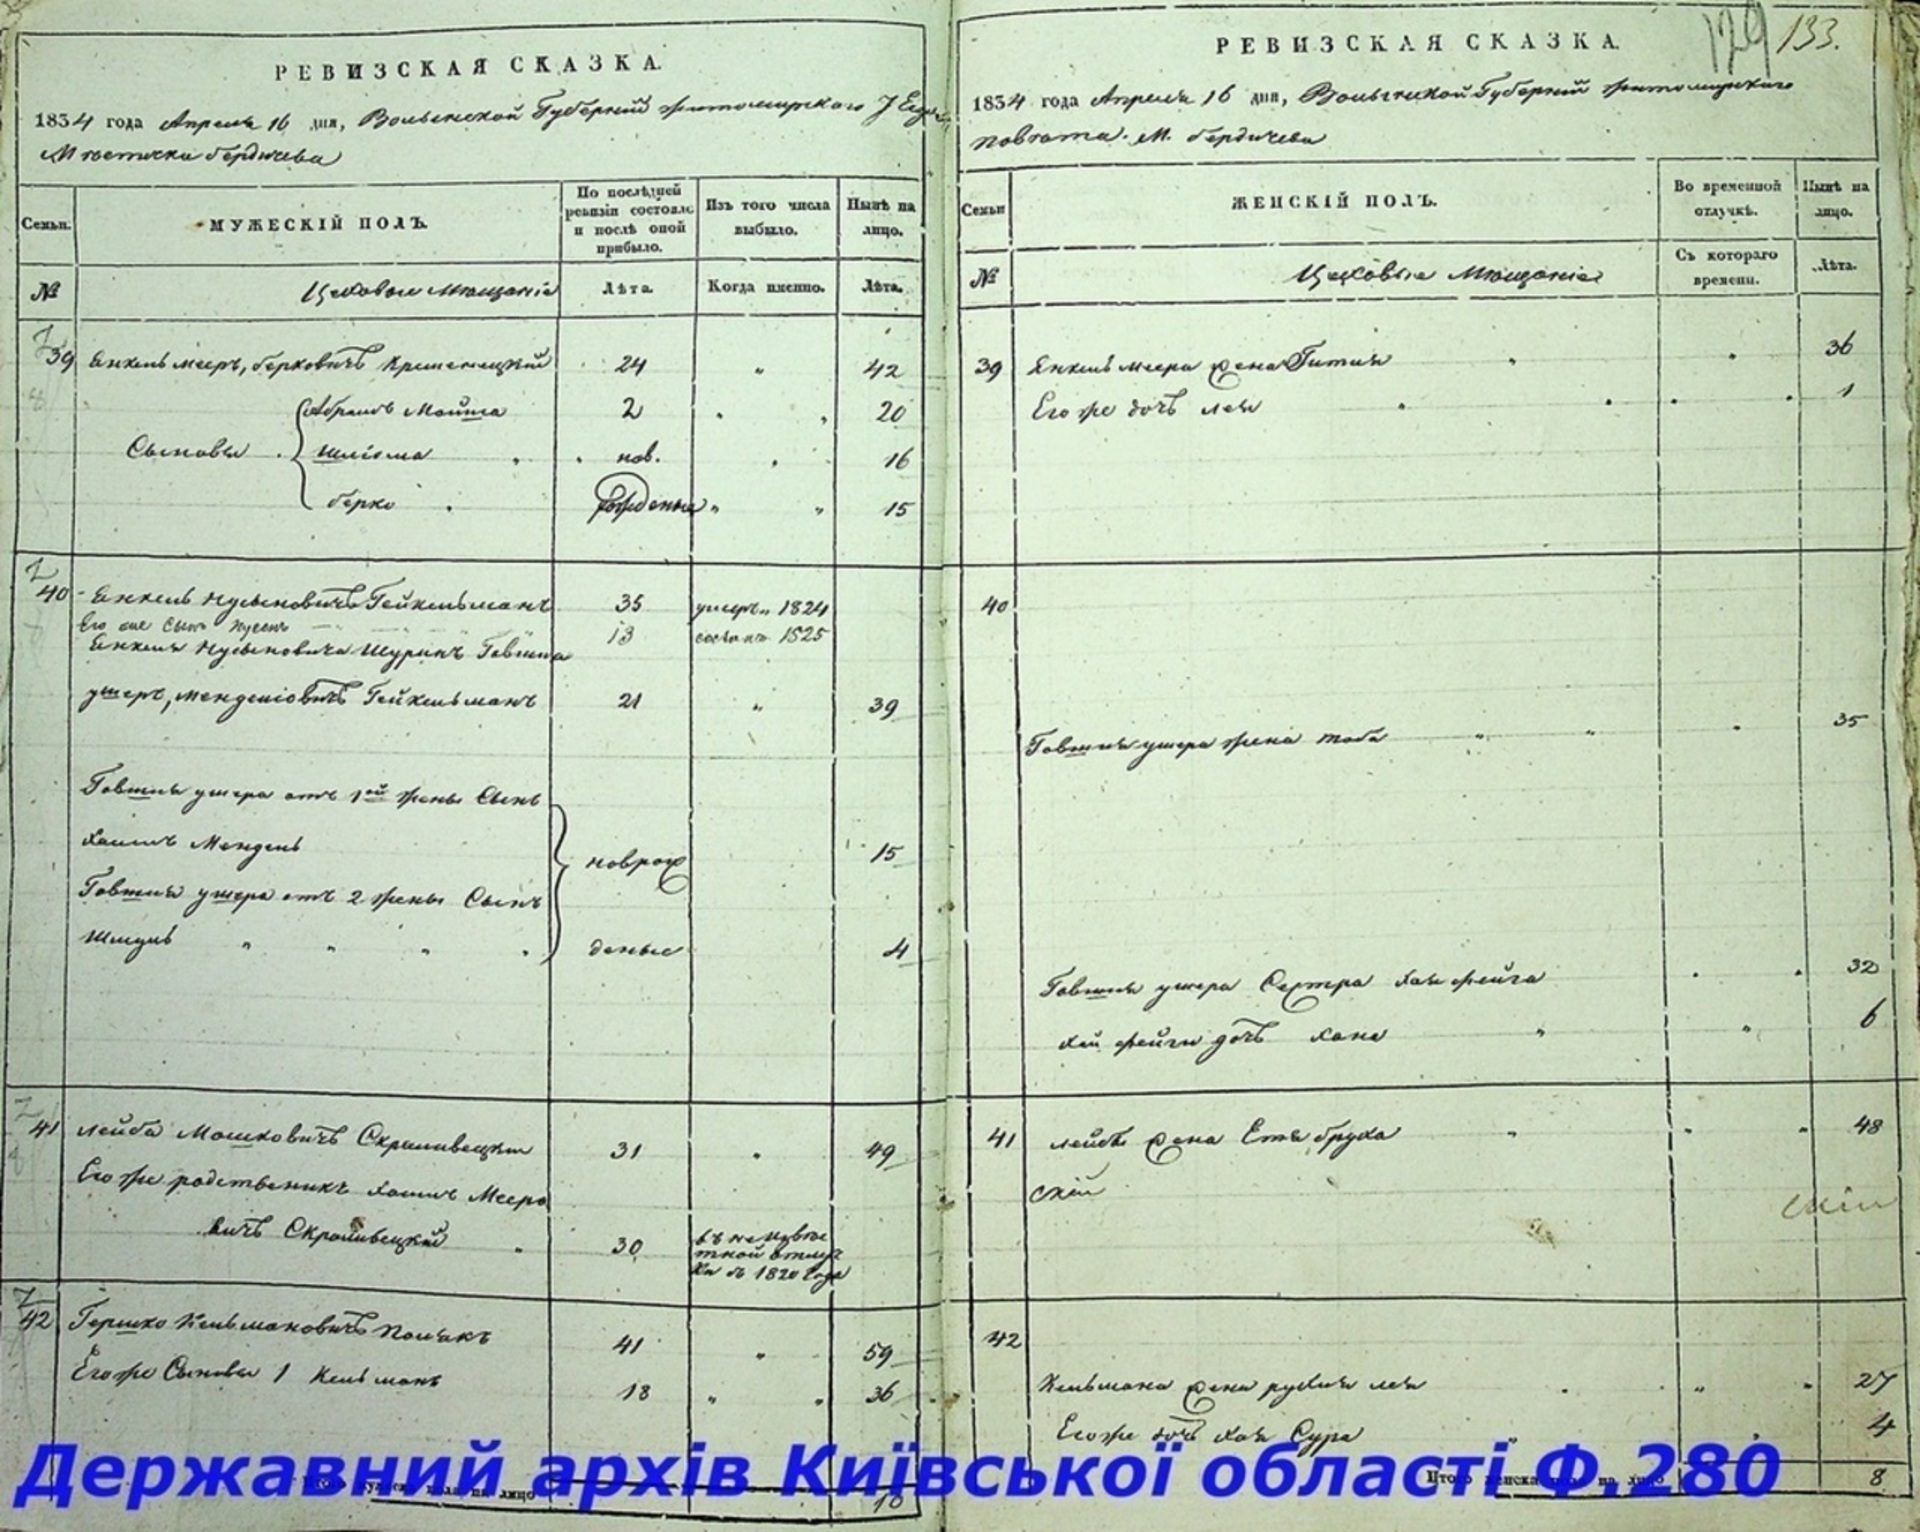 РЕВИЗСКАЯ СКАЗКА.
1834 года Апреля 16 дня, Волынской Губерніи Житомирского
Мѣстечка Бердичева
Семьи.
МУЖЕСКІЙ ПОЛЪ.
По послѣдней ревизіи состояло и послѣ оной прибыло.
Изъ того числа выбыло.
Нынѣ на лицо.
№
Цеховые Мещаніе
Лѣта.
Когда именно.
Лѣта.
39 Енкель Мееръ, Берковичъ Кременецкій 24 " 42
Абрамъ Мойша 2 " " 20
Сыновья Шліома " нов. " 16
Берко рожденные " " 15
40 Енкель Нусыновичъ Гейхельманъ 35 умеръ 1824
Его же Сынъ Нусенъ 13 1825
Енкеля Нусыновича Шуринъ Говшия
ушеръ, Менделіовичъ Гейхельманъ 21 " 39
Говшия ушера отъ 1ой жены Сынъ
Хаимъ Мендель новрож 15
Говшия ушера отъ 2 жены Сынъ
Шмуль " " " " деные 4
41 Лейба Мошковичъ 31 " 49
Его же родственникъ Хаимъ Меерo
вичъ " 30 въ неизвѣс
тной отлуч
ки съ 1820 года
42 Гершко Кельмановичъ Полякъ 41 " 59
Его же Сыновья 1 Кельманъ 18 " " 36
Итого мужеска пола на лицо 10
129 133.
РЕВИЗСКАЯ СКАЗКА.
1834 года Апреля 16 дня, Волынской Губерніи Житомирского
Повѣта. М. Бердичева
Семьи
ЖЕНСКІЙ ПОЛЪ.
Во временной отлучкѣ.
Нынѣ на лицо.
№
Цеховые Мещаніе
Съ котораго времени.
Лѣта.
39 Енкель Меера жена Гитля " " 36
Его же дочь Лея " " " " 1
40
Говшия ушера жена Тоба " " " 35
Говшия ушера Сестра Хая Фейга " " 32
Хаи Фейги дочь Хана " " 6
41 Лейбы жена Етя Бруха " " " 48
скій
скій
42
Кельмана жена Рухля Лея " " " 27
Его же дочь Хая Сура " " 4
Итого женска пола на лицо 8
Державний архів Київської області Ф.280